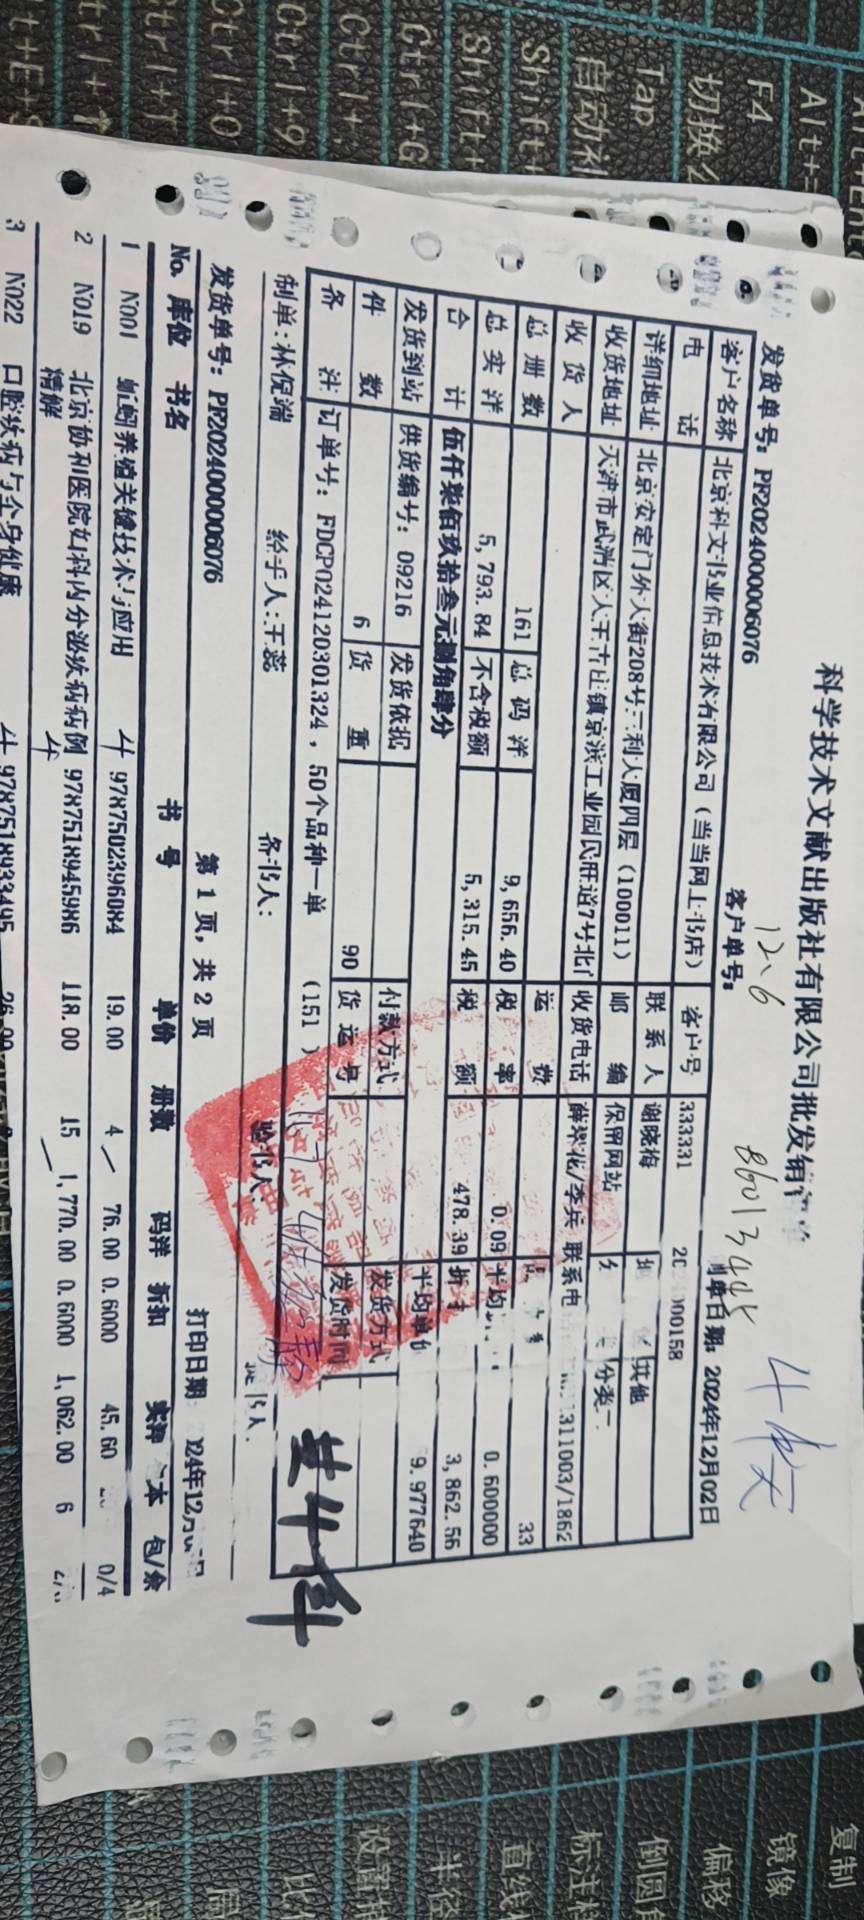 科学技术文献出版社有限公司批发销
12.6
86013445
发货单号: PF2024000006076 客户单号: 制单日期: 2024年12月02日
客户名称 北京科文书业信息技术有限公司（当当网上书店） 客户号 333331
电 话 联系人 谢晓梅 其他
详细地址 北京安定门外大街208号三利大厦四层（100011） 邮 编 保留网站 分类
收货地址 天津市武清区大王古庄镇京滨工业园民旺道7号北门 收货电话 薛翠花/李兵 联系电 311003/1862
收货人 运 费 33
总册数 161 总码洋 9,656.40 税 率 0.09 平均 0.600000
总实洋 5,793.84 不含税额 5,315.45 税 额 478.39 折 3,862.56
合 计 伍仟柒佰玖拾叁元捌角肆分 平均单价 9.977640
发货到站 供货编号: 09216 发货依据 付款方式 发货方式
件 数 6 货 重 90 货运号 发货时间
备 注 订单号: FDCP024120301324，50个品种一单 （151）
制单: 林倪端 经手人: 王蕊 备书人: 验书人:
发货单号: PF2024000006076 第 1 页, 共 2 页 打印日期
No. 库位 书名 书 号 单价 册数 码洋 折扣 实洋 本 包/余
1 N001 蚯蚓养殖关键技术与应用 9787502396084 19.00 4 76.00 0.6000 45.60 0/4
2 N019 北京协和医院妇科内分泌疾病病例 9787518945986 118.00 15 1,770.00 0.6000 1,062.00 6
精解
3 N022 口腔疾病与全身健康 9787518933495 26.00
Alt+
F4
切换
Tap
自动补
Shift+
Shift+
Ctrl+G
Ctrl+.
Ctrl+9
Ctrl+O
Ctrl+T
复制
镜像
偏移
倒圆角
标注
直线
半径
设置